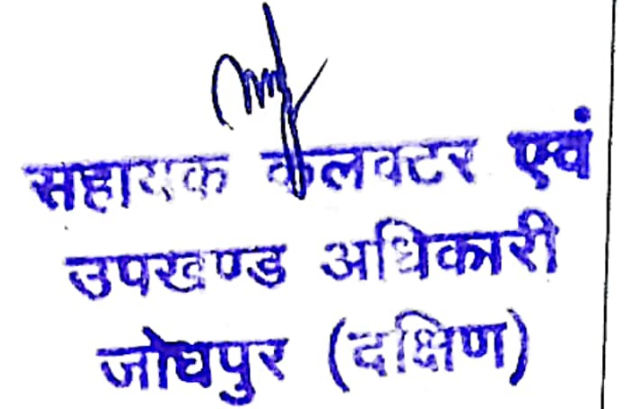 सहायक कलक्टर एवं
उपखण्ड अधिकारी
जोधपुर (दक्षिण)